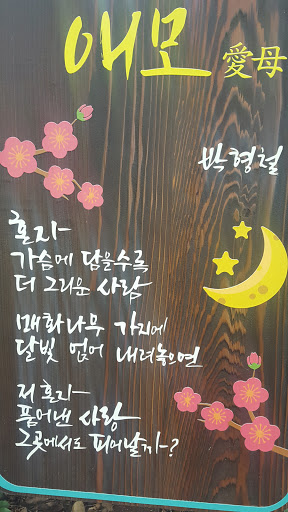 애모 愛母
박형철
혼자
가슴에 담을수록
더 그리운 사람
매화나무 가지에
달빛 얹어 내려놓으면
저 혼자
품어낸 사랑
그곳에서도 피어날까?